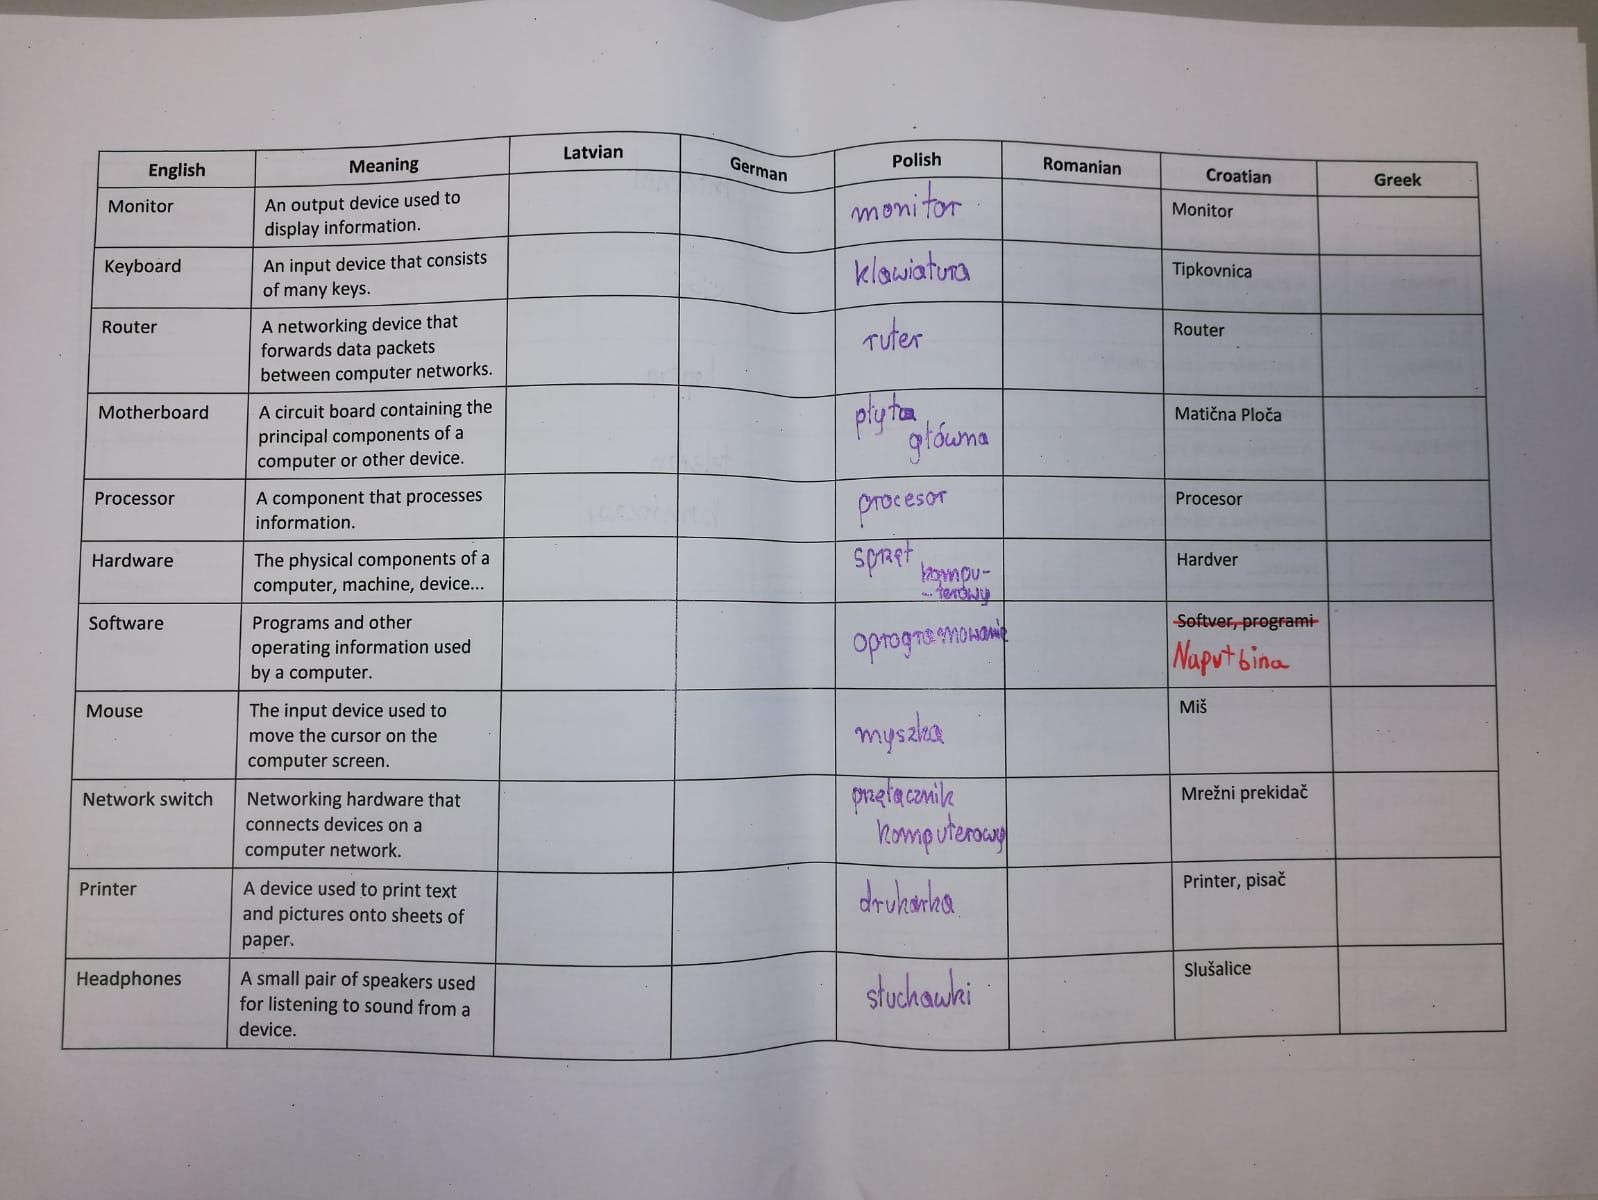 English Meaning Latvian German Polish Romanian Croatian Greek
Monitor An output device used to monitor Monitor
display information.
Keyboard An input device that consists klawiatura Tipkovnica
of many keys.
Router A networking device that ruter Router
forwards data packets
between computer networks.
Motherboard A circuit board containing the płyta Matična Ploča
principal components of a główna
computer or other device.
Processor A component that processes procesor Procesor
information.
Hardware The physical components of a sprzęt Hardver
computer, machine, device... kompu-
-terowy
Software Programs and other oprogramowanie Softver, programi
operating information used Naputbina
by a computer.
Mouse The input device used to myszka Miš
move the cursor on the
computer screen.
Network switch Networking hardware that przełącznik Mrežni prekidač
connects devices on a komputerowy
computer network.
Printer A device used to print text drukarka Printer, pisač
and pictures onto sheets of
paper.
Headphones A small pair of speakers used słuchawki Slušalice
for listening to sound from a
device.